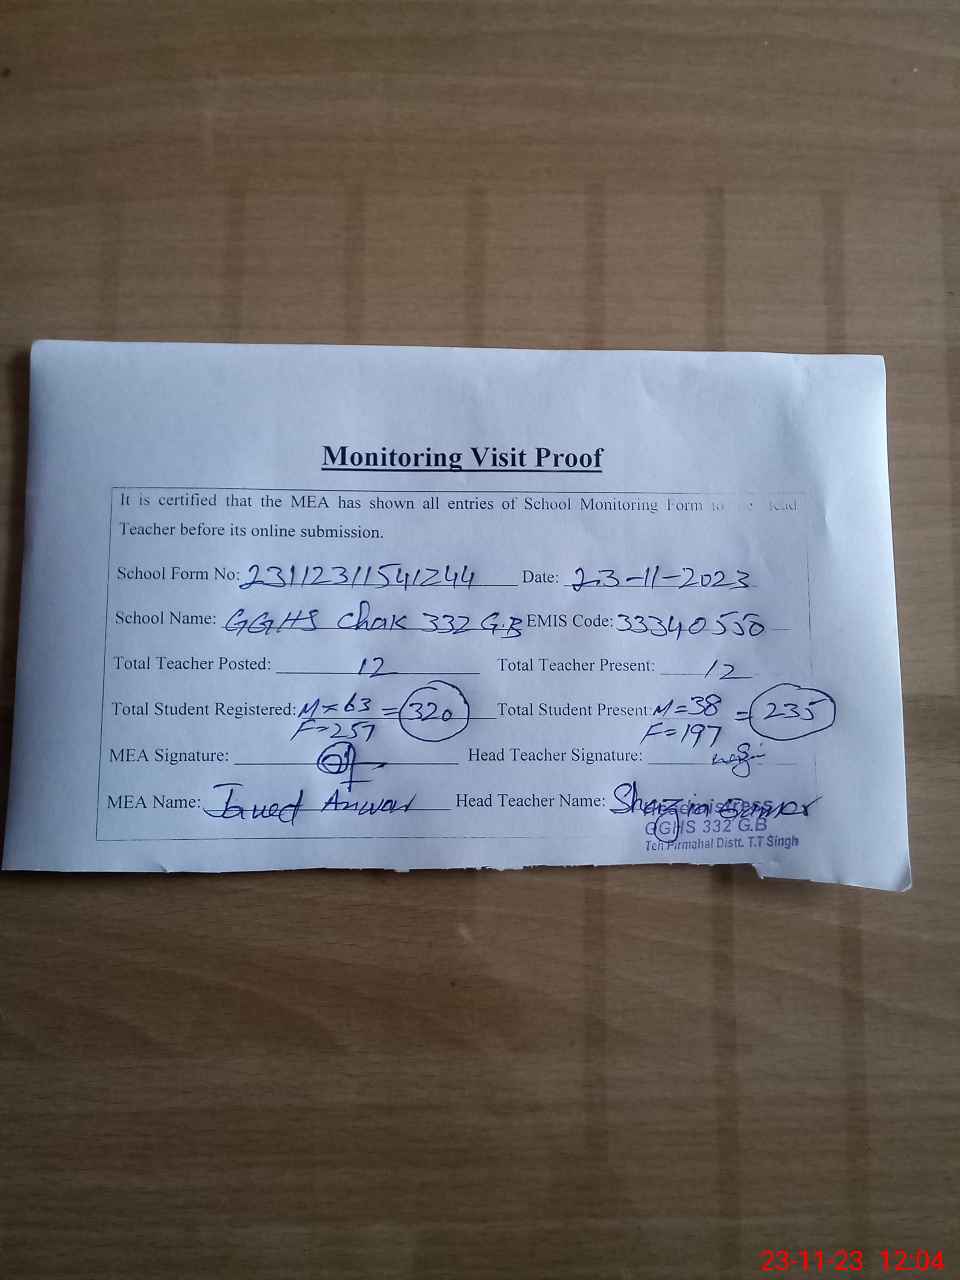 Monitoring Visit Proof
It is certified that the MEA has shown all entries of School Monitoring Form to Head
Teacher before its online submission.
School Form No: 23112311541244 Date: 23-11-2023
School Name: GGHS Chak 332 G.B EMIS Code: 33340550
Total Teacher Posted: 12 Total Teacher Present: 12
Total Student Registered: M=63 = 320 Total Student Present: M=38 = 235
F=257 F=197
MEA Signature: Head Teacher Signature:
MEA Name: Javed Anwar Head Teacher Name: Shazia
Headmistress
GGHS 332 G.B
Teh Pirmahal Distt. T.T Singh
23-11-23 12:04